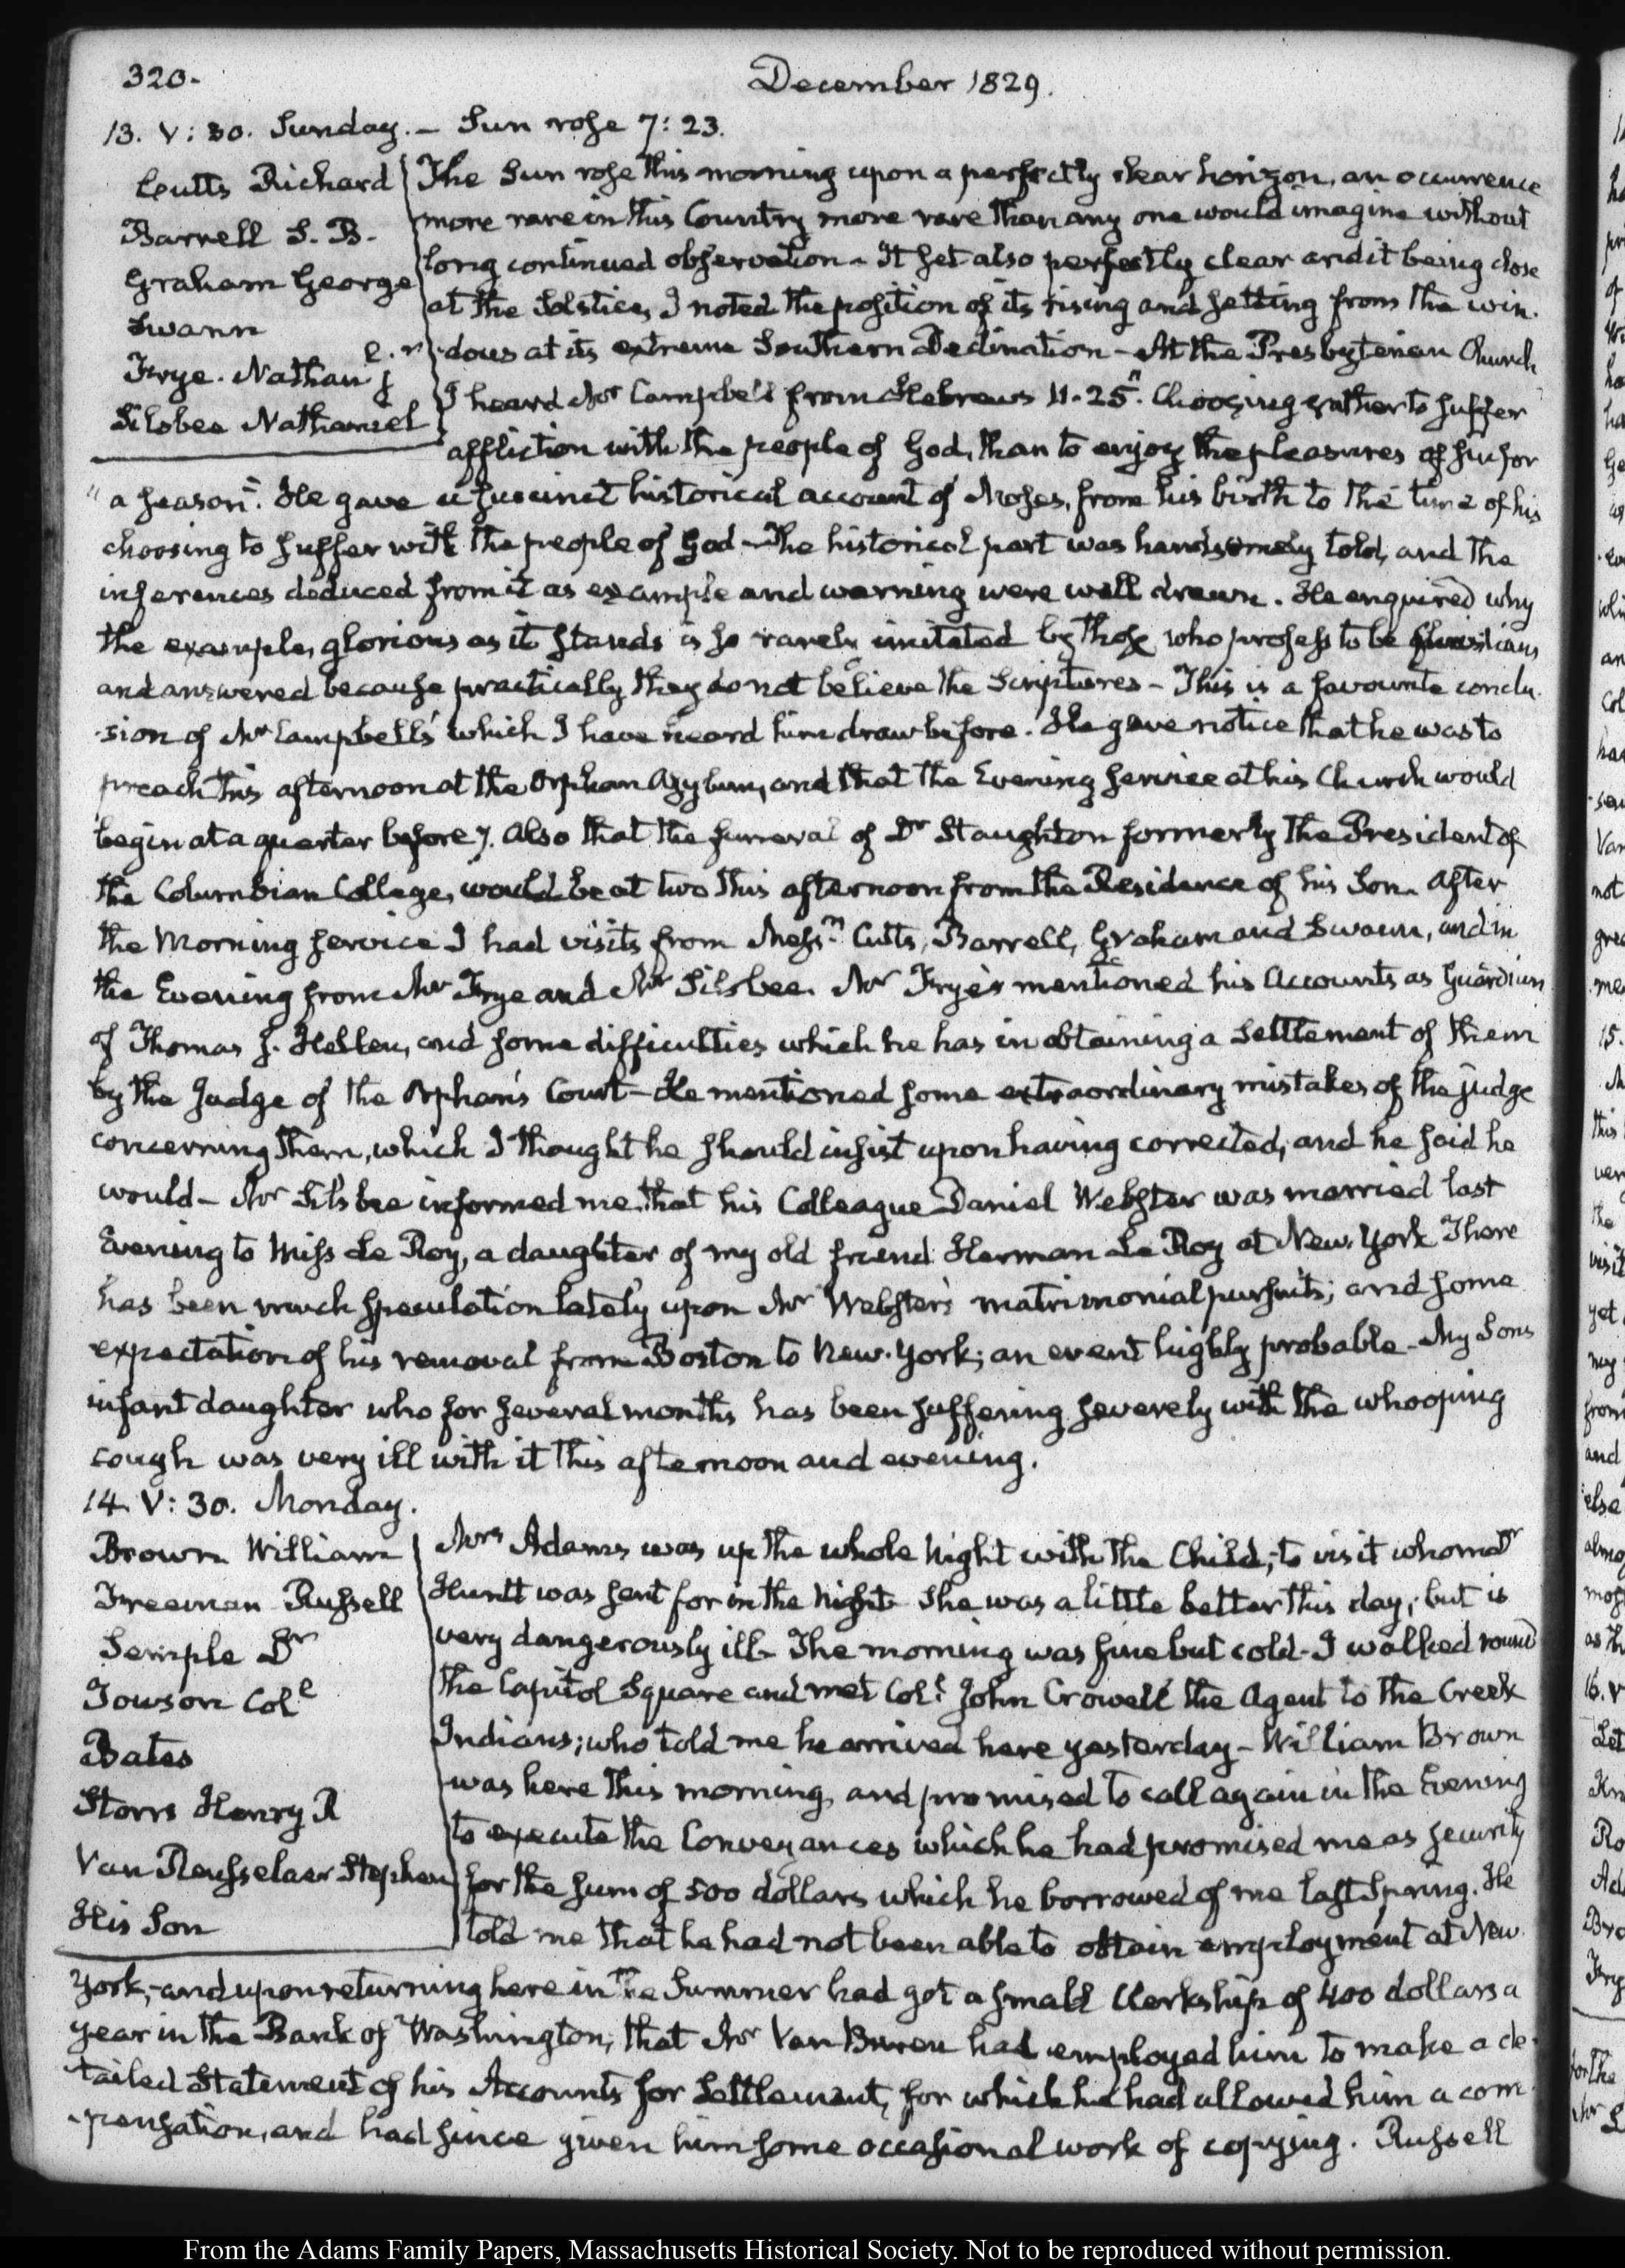 320.
December 1829.
13. V: 30. Sunday. — Sun rose 7: 23.
Cutts Richard
Barrell S. B.
Graham George
Swann
Frye. Nathan
Silsbee Nathaniel
The Sun rose this morning upon a perfectly clear horizon, an occurrence
more rare in this Country more rare than any one would imagine without
long continued observation — It set also perfectly clear and it being close
at the Solstice, I noted the position of its rising and setting from the win-
dows at its extreme Southern Declination — At the Presbyterian Church
I heard Mr Campbell from Hebrews 11. 25. "Choosing rather to suffer
affliction with the people of God, than to enjoy the pleasures of sin for
"a season". He gave a succinct historical account of Moses, from his birth to the time of his
choosing to suffer with the people of God — The historical part was handsomely told, and the
inferences deduced from it as example and warning were well drawn. He enquired why
the example, glorious as it stands is so rarely imitated by those who profess to be Christians
and answered because practically they do not believe the Scriptures — This is a favourite conclu-
-sion of Mr Campbell's which I have heard him draw before. He gave notice that he was to
preach this afternoon at the Orphan Asylum, and that the Evening service at his Church would
begin at a quarter before 7. Also that the funeral of Dr Staughton formerly the President of
the Columbian College, would be at two this afternoon from the Residence of his Son. After
the Morning service I had visits from Messrs Cutts, Barrell, Graham and Swann, and in
the Evening from Mr Frye and Mr Silsbee. Mr Frye mentioned his Accounts as Guardian
of Thomas J. Hellen, and some difficulties which he has in obtaining a settlement of them
by the Judge of the Orphan's Court — He mentioned some extraordinary mistakes of the judge
concerning them, which I thought he should insist upon having corrected, and he said he
would — Mr Silsbee informed me that his Colleague Daniel Webster was married last
Evening to Miss Le Roy, a daughter of my old friend Herman Le Roy at New-York There
has been much speculation lately upon Mr Webster's matrimonial pursuits; and some
expectation of his removal from Boston to New-York; an event highly probable — My Sons
infant daughter who for several months has been suffering severely with the whooping
cough was very ill with it this afternoon and evening.
14. V: 30. Monday.
Brown William
Freeman Russell
Semple Dr
Towson Col
Bates
Storrs Henry R
Van Rensselaer Stephen
His Son
Mrs Adams was up the whole Night with the Child; to visit whom Dr
Huntt was sent for in the Night She was a little better this day, but is
very dangerously ill — The morning was fine but cold — I walked round
the Capitol Square and met Col. John Crowell the Agent to the Creek
Indians; who told me he arrived here yesterday — William Brown
was here this morning, and promised to call again in the Evening
to execute the Conveyances which he had promised me as security
for the sum of 500 dollars which he borrowed of me last Spring. He
told me that he had not been able to obtain employment at New
York, and upon returning here in the Summer had got a small Clerkship of 400 dollars a
year in the Bank of Washington; that Mr Van Buren had employed him to make a de-
tailed Statement of his Accounts for Settlement, for which he had allowed him a com-
-pensation, and had since given him some occasional work of copying. Russell
From the Adams Family Papers, Massachusetts Historical Society. Not to be reproduced without permission.